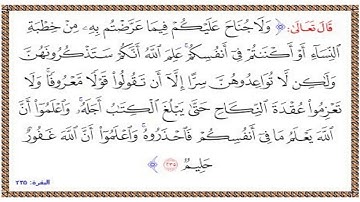 قَالَ تَعَالَى: ﴿ وَلَا جُنَاحَ عَلَيْكُمْ فِيمَا عَرَّضْتُم بِهِۦ مِنْ خِطْبَةِ
ٱلنِّسَآءِ أَوْ أَكْنَنتُمْ فِىٓ أَنفُسِكُمْ ۚ عَلِمَ ٱللَّهُ أَنَّكُمْ سَتَذْكُرُونَهُنَّ
وَلَـٰكِن لَّا تُوَاعِدُوهُنَّ سِرًّا إِلَّآ أَن تَقُولُوا۟ قَوْلًا مَّعْرُوفًا ۚ وَلَا
تَعْزِمُوا۟ عُقْدَةَ ٱلنِّكَاحِ حَتَّىٰ يَبْلُغَ ٱلْكِتَـٰبُ أَجَلَهُۥ ۚ وَٱعْلَمُوٓا۟ أَنَّ
ٱللَّهَ يَعْلَمُ مَا فِىٓ أَنفُسِكُمْ فَٱحْذَرُوهُ ۚ وَٱعْلَمُوٓا۟ أَنَّ ٱللَّهَ غَفُورٌ
حَلِيمٌ ٢٣٥ ﴾
البقرة: ٢٣٥